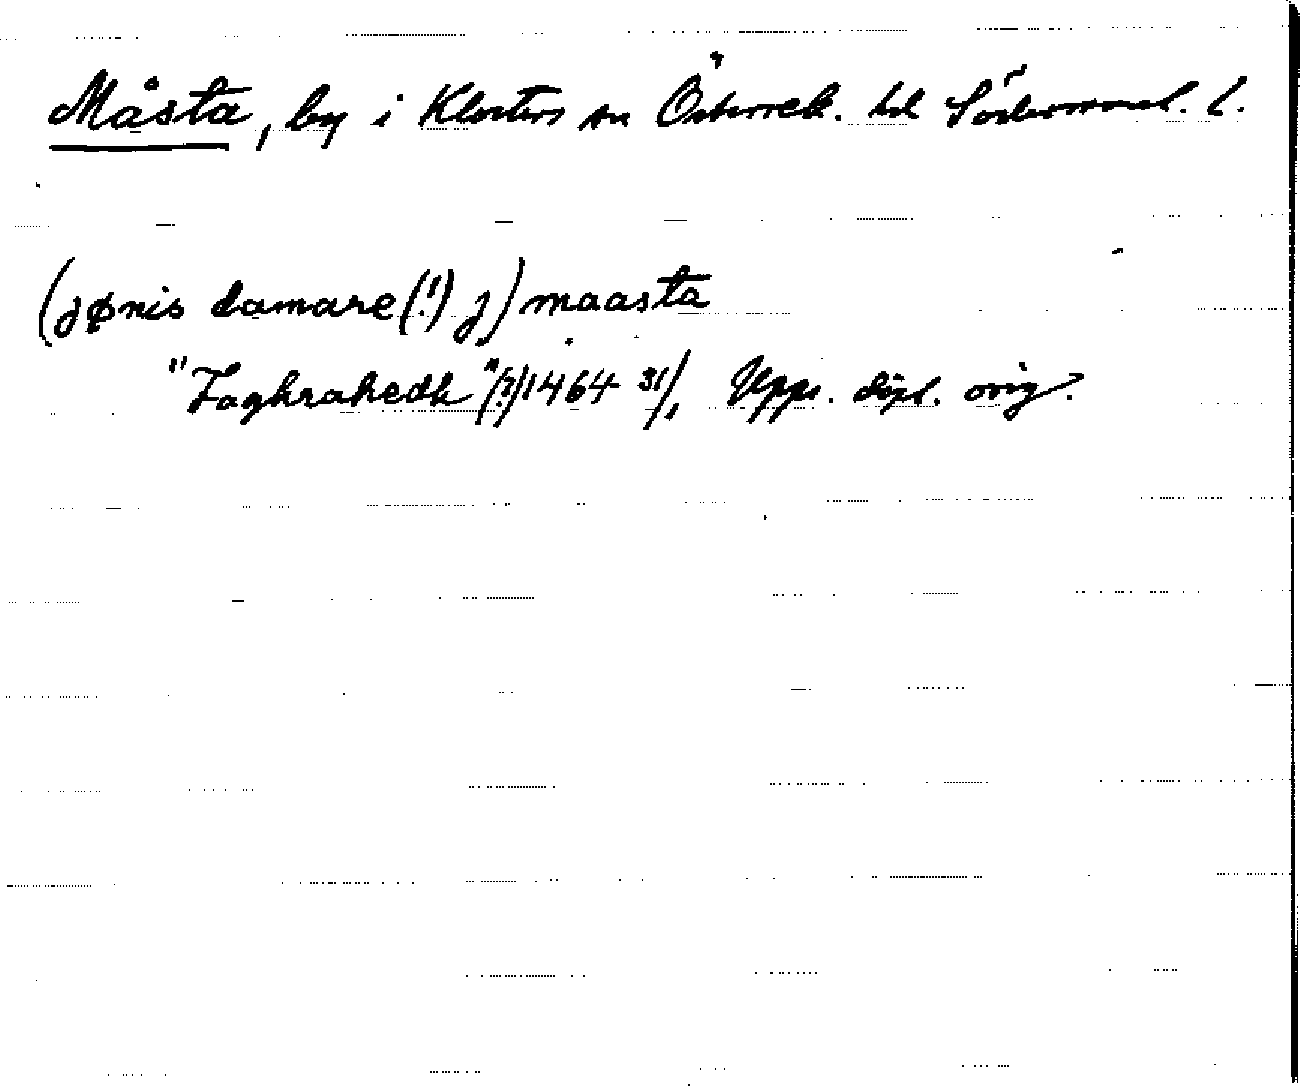 Måsta, by i Klosters sn Österrek. hd Södermanl. l.
(jønis damare(!) j) maasta
"Faghrahedh"(?) 1464 31/1 Upps. dipl. orig.